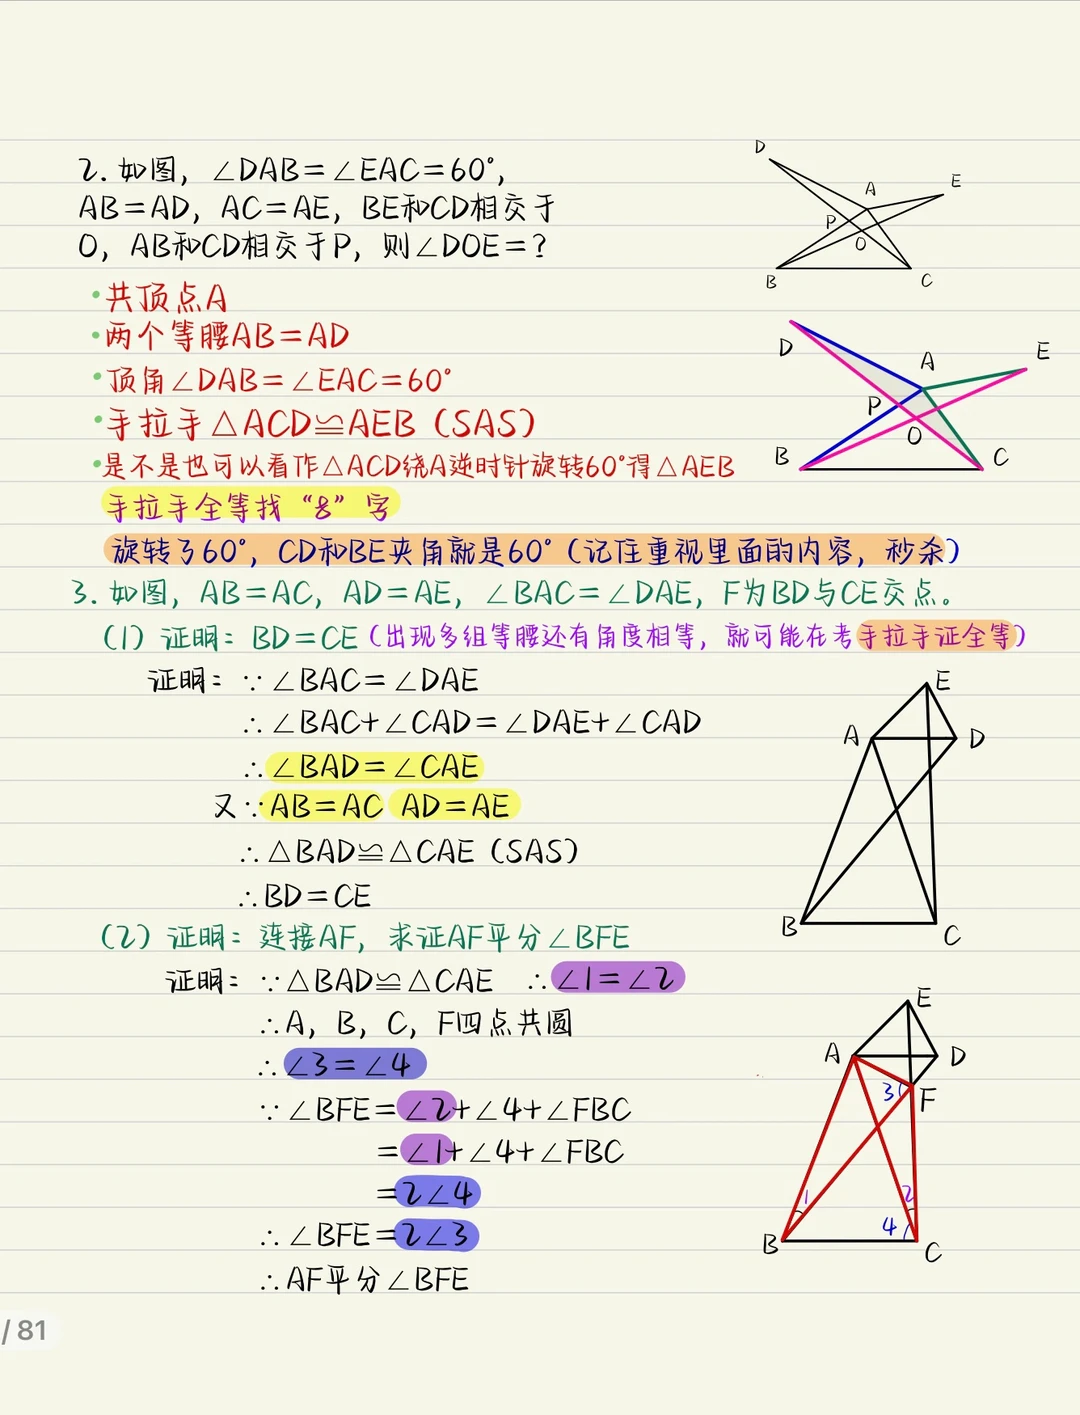 2. 如图，∠DAB=∠EAC=60°，
AB=AD，AC=AE，BE和CD相交于
O，AB和CD相交于P，则∠DOE=？
D
A
E
P
O
B
C
·共顶点A
·两个等腰AB=AD
·顶角∠DAB=∠EAC=60°
·手拉手△ACD≌AEB（SAS）
·是不是也可以看作△ACD绕A逆时针旋转60°得△AEB
手拉手全等找“8”字
旋转了60°，CD和BE夹角就是60°（记住重视里面的内容，秒杀）
D
A
E
P
O
B
C
3. 如图，AB=AC，AD=AE，∠BAC=∠DAE，F为BD与CE交点。
（1）证明：BD=CE（出现多组等腰还有角度相等，就可能在考手拉手证全等）
证明：∵∠BAC=∠DAE
∴∠BAC+∠CAD=∠DAE+∠CAD
∴∠BAD=∠CAE
又∵AB=AC AD=AE
∴△BAD≌△CAE（SAS）
∴BD=CE
E
A
D
B
C
（2）证明：连接AF，求证AF平分∠BFE
证明：∵△BAD≌△CAE ∴∠1=∠2
∴A，B，C，F四点共圆
∴∠3=∠4
∵∠BFE=∠2+∠4+∠FBC
=∠1+∠4+∠FBC
=2∠4
∴∠BFE=2∠3
∴AF平分∠BFE
E
A
D
3
F
1
2
4
B
C
/ 81